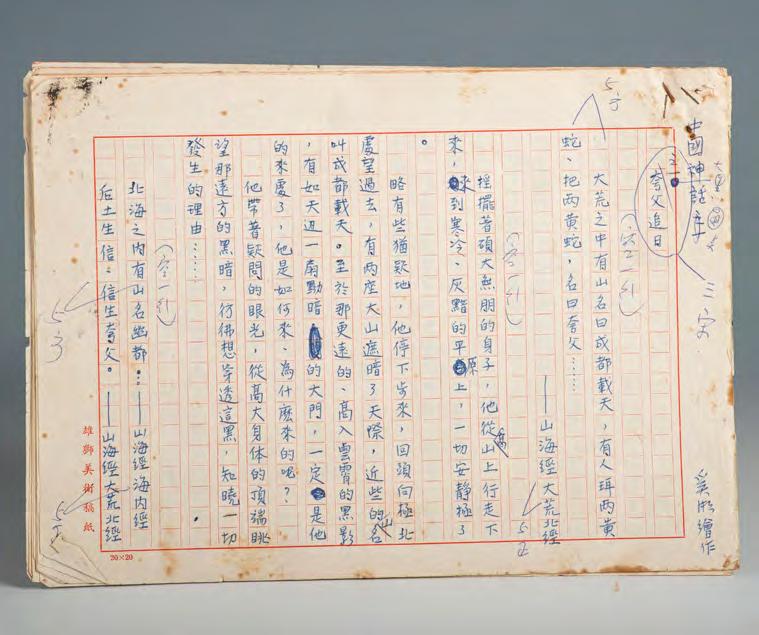 中國神話之一
夸父追日
三宋
奚淞繪作
5方
（空一行）
大荒之中有山名曰成都載天，有人珥兩黃
蛇、把兩黃蛇，名曰夸父……
——山海經大荒北經
5正
（空一行）
搖擺著碩大無朋的身子，他從高山上行走下
來，來到寒冷、灰黯的平原上，一切安靜極了
。
略有些猶疑地，他停下步來，回頭向極北
處望過去，有兩座大山遮暗了天際，近些的山名
叫成都載天。至於那更遠的、高入雲霄的黑影
，有如天邊一扇黝暗的大門，一定是他
的來處了，他是如何來、為什麼來的呢？
他帶著疑問的眼光，從高大身體的頂端眺
望那遠方的黑暗，彷彿想穿透這黑，知曉一切
發生的理由……
（空一行）
北海之內有山名幽都…——山海經海內經
后土生信。信生夸父。——山海經大荒北經
5方
5正
雄獅美術稿紙
20×20